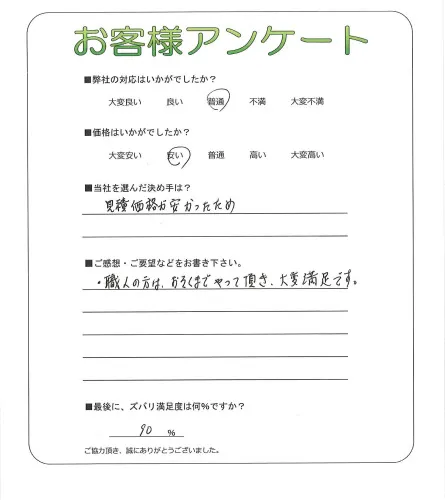 お客様アンケート
■弊社の対応はいかがでしたか？
大変良い 良い 普通 不満 大変不満
■価格はいかがでしたか？
大変安い 安い 普通 高い 大変高い
■当社を選んだ決め手は？
見積価格が安かったため
■ご感想・ご要望などをお書き下さい。
・職人の方は、おそくまでやって頂き、大変満足です。
■最後に、ズバリ満足度は何%ですか？
90 %
ご協力頂き、誠にありがとうございました。